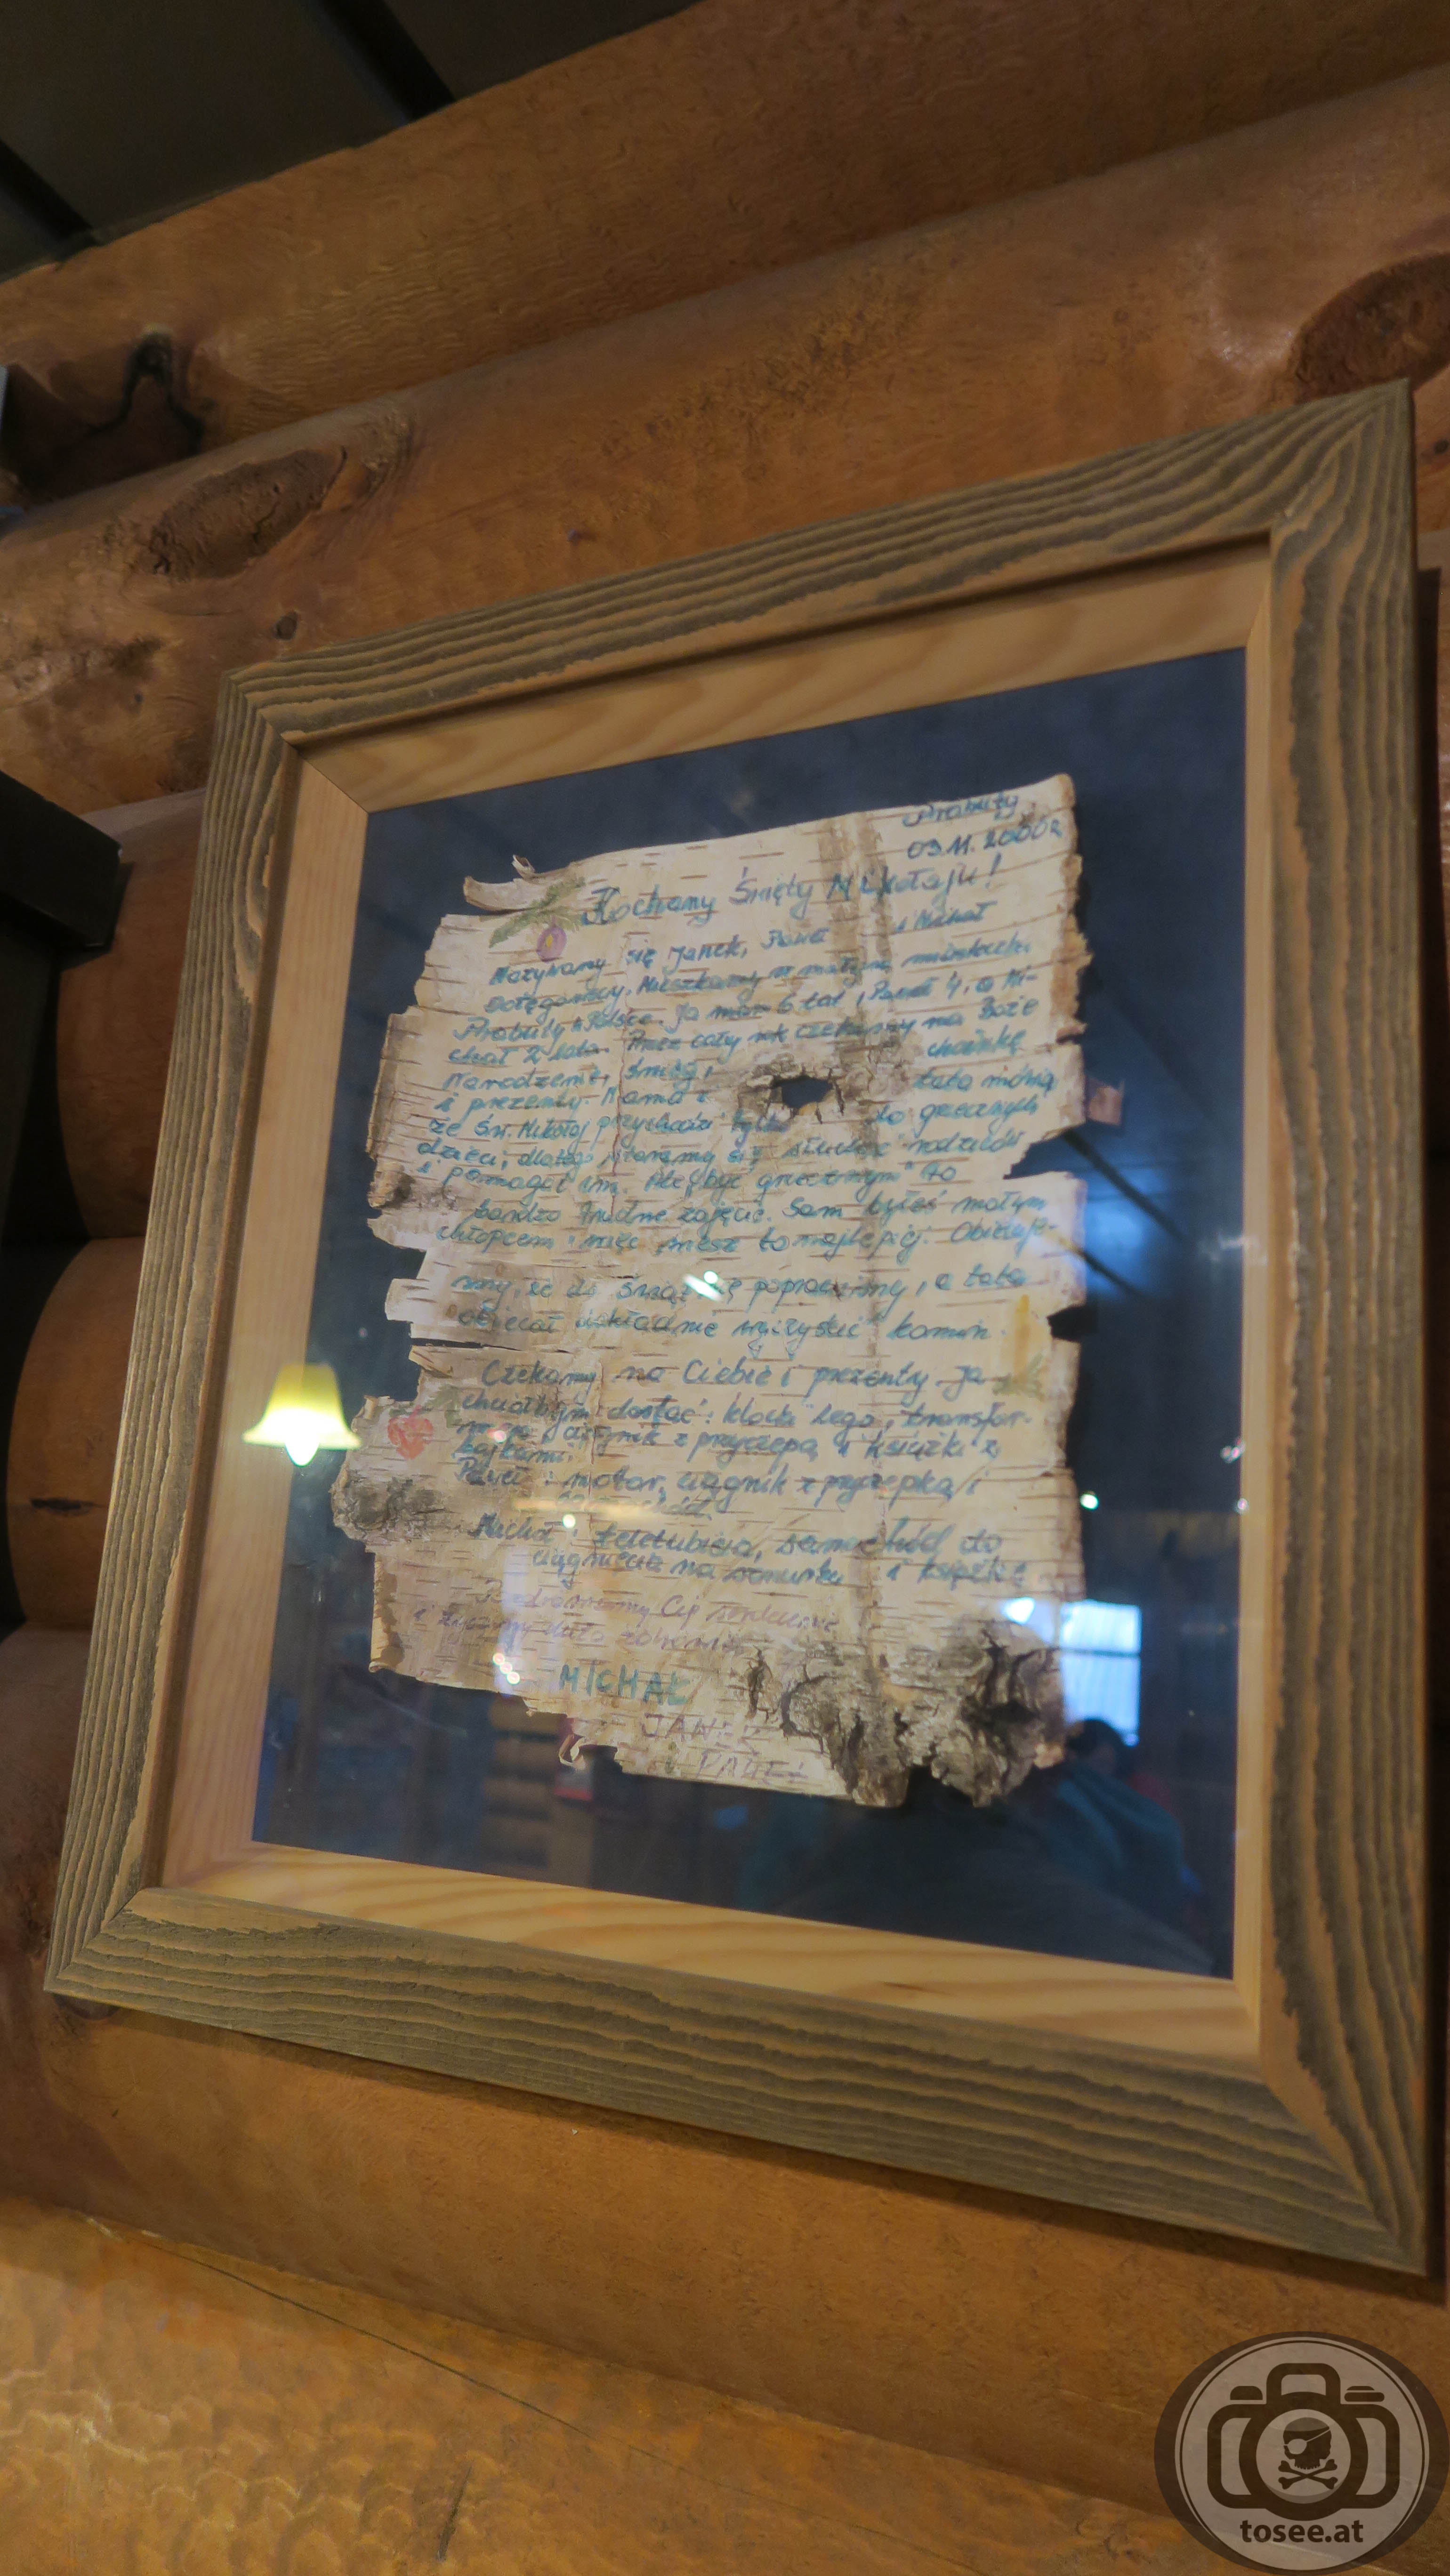 Prabuty,
03.11.2000r
Kochany Święty Mikołaju!
Nazywamy się Janek, Paweł i Michał
Mieszkamy w małym miasteczku
Prabuty w Polsce. Ja mam 6 lat, Paweł 4, a Mi-
chał 2 lata. Przez cały rok czekamy na Boże
Narodzenie, śnieg, choinkę
i prezenty. Mama i tata mówią
że Św. Mikołaj przychodzi tylko do grzecznych
dzieci, dlatego staramy się słuchać rodziców
i pomagać im. Ale "być grzecznym" to
bardzo trudne zajęcie. Sam byłeś małym
chłopcem więc wiesz to najlepiej. Obiecuje-
my, że do Świąt się poprawimy, a tata
obiecał dokładnie wyczyścić komin.
Czekamy na Ciebie i prezenty. Ja
chciałbym dostać: klocki lego, transfor-
ciągnik z przyczepą i książki z
bajkami.
Paweł: motor, ciągnik z przyczepką i
Michał: teletubisia, samochód do
ciągnięcia na sznurku i książkę
Pozdrawiamy Cię serdecznie
i życzymy dużo zdrowia
MICHAŁ
JANEK
PAWEŁ
tosee.at